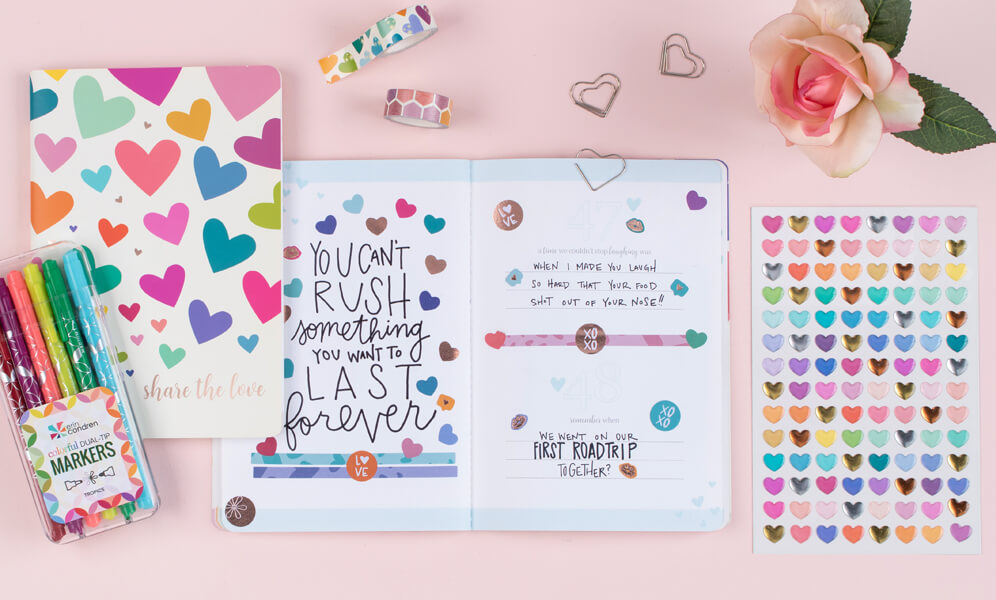 share the love
erin condren
colorful DUAL-TIP
MARKERS
TROPICS
YOU CAN'T
RUSH
something
YOU WANT TO
LAST
forever
LOVE
LO
VE
47
a time we couldn't stop laughing was
WHEN I MADE YOU LAUGH
SO HARD THAT YOUR FOOD
SHOT OUT OF YOUR NOSE!!
XO
XO
48
remember when
XO
XO
WE WENT ON OUR
FIRST ROADTRIP
TOGETHER?